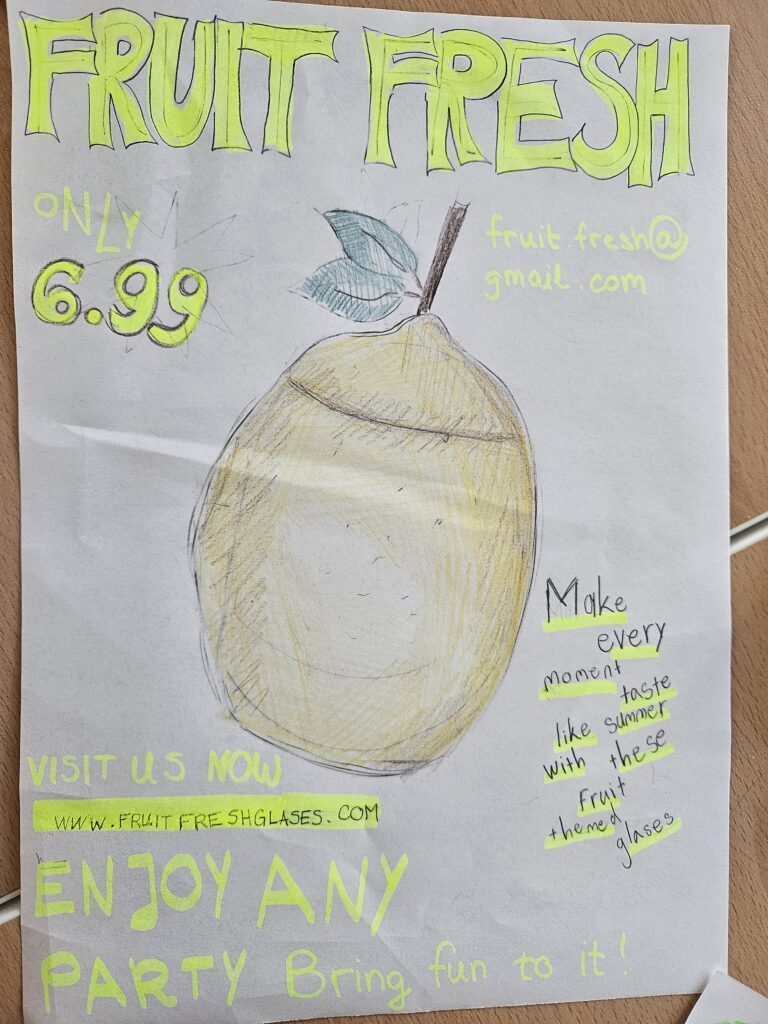 FRUIT FRESH
ONLY
6.99
fruit.fresh@
gmail.com
Make
every
moment
taste
like summer
with these
Fruit
themed
glases
VISIT US NOW
WWW.FRUITFRESHGLASES.COM
ENJOY ANY
PARTY Bring fun to it!